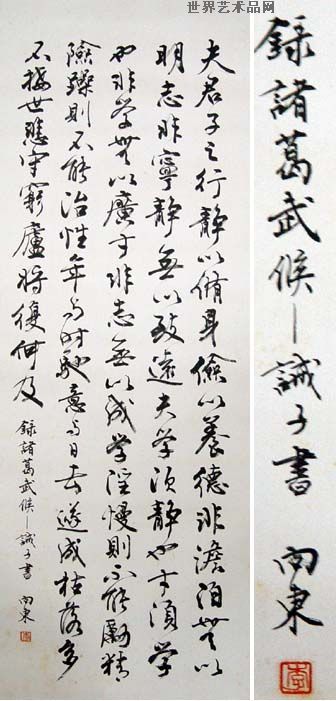 世界艺术品网
夫君子之行静以脩身儉以養德非澹泊無以
明志非寧静無以致遠夫学須静也才須学
也非学無以廣才非志無以成学淫慢則不能勵精
險躁則不能治性年与时馳意与日去遂成枯落多
不接世悲守窮廬將復何及
録諸葛武侯誡子書 向東
録諸葛武侯誡子書 向東
李